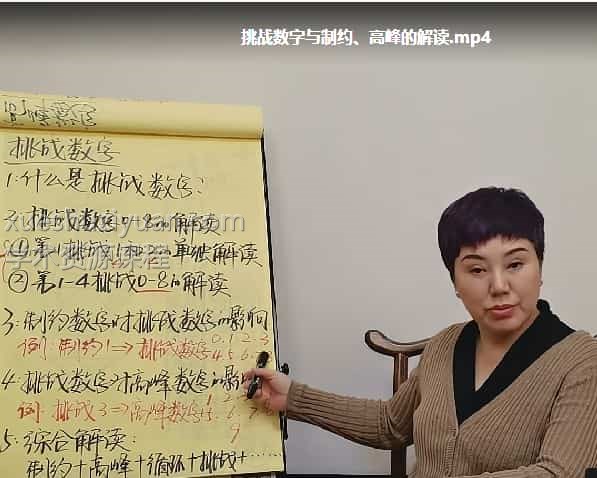 挑战数字与制约、高峰的解读.mp4
挑战数字
1:什么是挑战数字?
2:挑战数字0-8的解读
①第1挑战1
单独解读
②第1-4挑战0-8的解读
3:制约数字对挑战数字的影响
例:制约1⇒挑战数字 0.1.2.3
4.5.6.
4:挑战数字对高峰数字的影响
例:挑战3⇒高峰数字
9
5:综合解读:
制约+高峰+循环+挑战+……